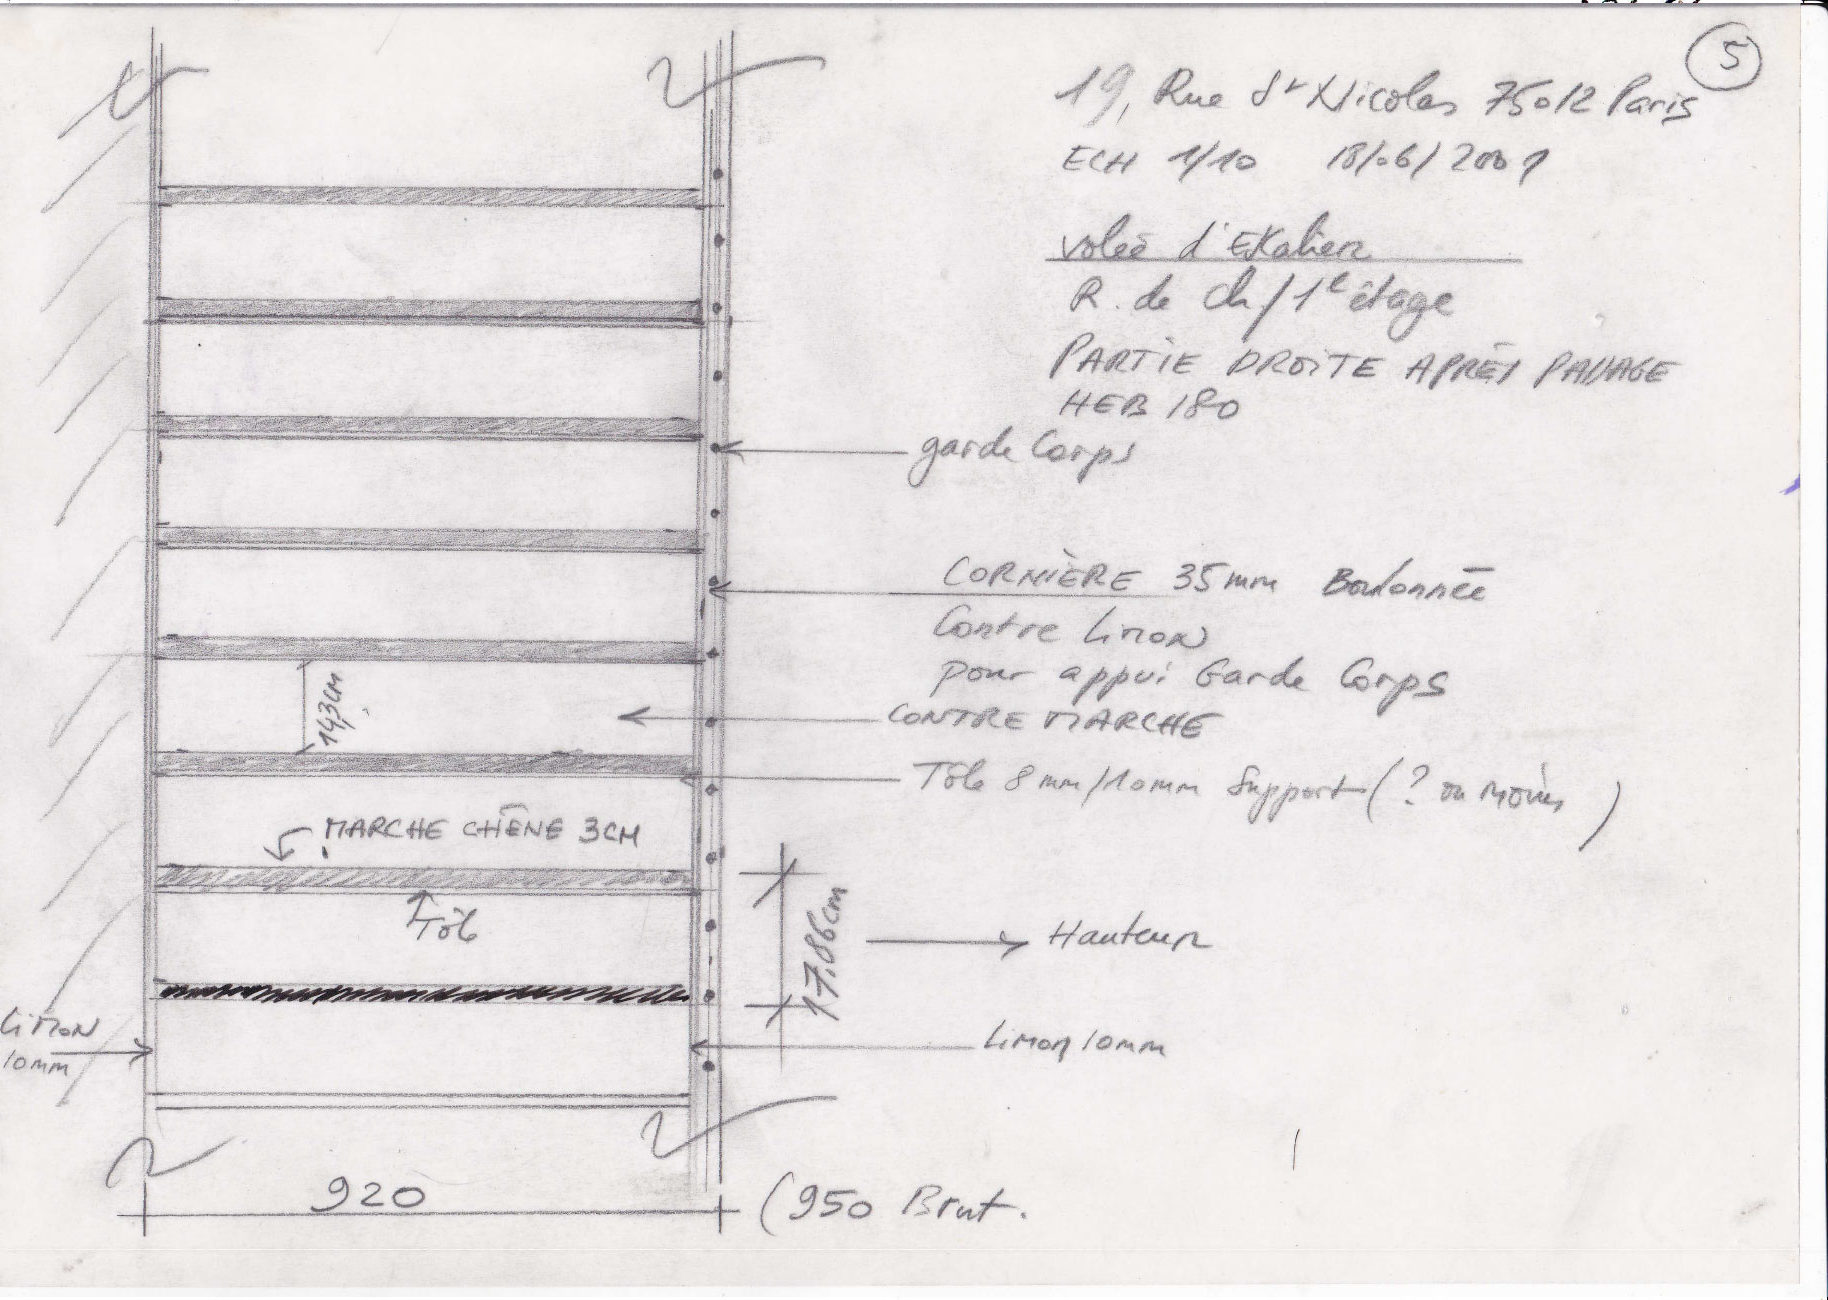 5
19, Rue St Nicolas 75012 Paris
ECH 1/10 18/06/2009
volée d'Escalier
R. de ch/1e étage
PARTIE DROITE APRÈS PALIAGE
HEB 180
garde Corps
CORNIÈRE 35mm Boulonnée
Contre Limon
pour appui Garde Corps
14,3cm
CONTRE MARCHE
Tôle 8mm/10mm Support (? ou moins)
MARCHE CHÊNE 3CM
Tôle
17,86cm
Hauteur
Limon
10mm
Limon 10mm
920
(950 Brut.